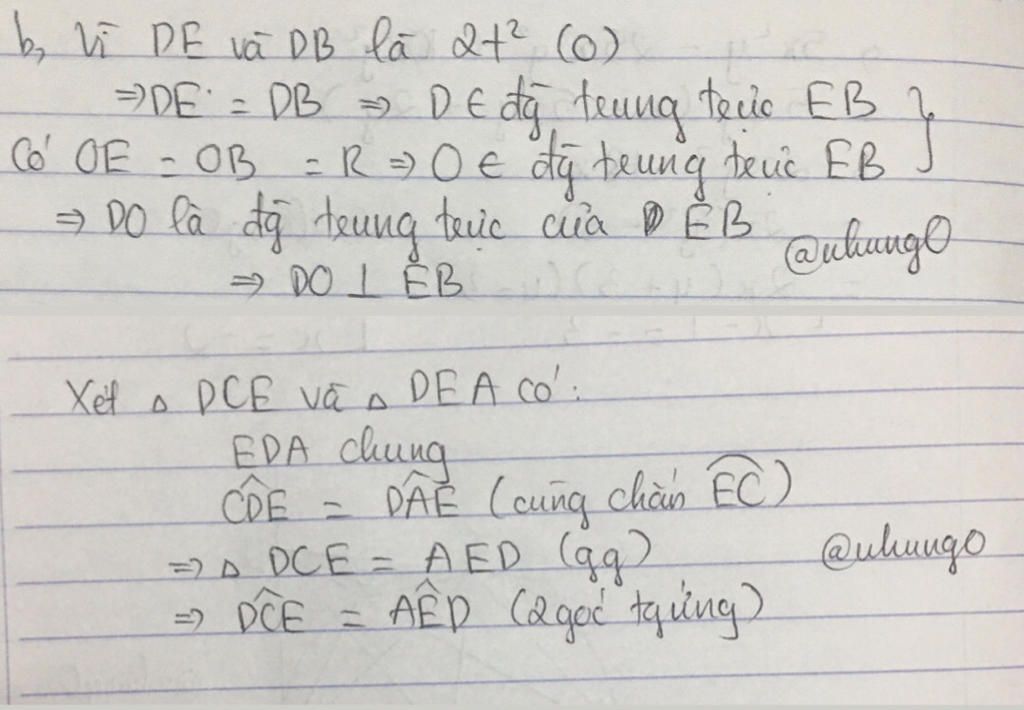 b, Vì DE và DB là 2t² (O)
⇒ DE = DB ⇒ D ∈ đg trung trực EB
Có OE = OB = R ⇒ O ∈ đg trung trực EB
⇒ DO là đg trung trực của EB
@uhung0
⇒ DO ⊥ EB
Xét △ DCE và △ DEA có:
EDA chung
CDE = DAE (cùng chắn EC)
⇒ △ DCE = AED (gg)
@uhung0
⇒ DCE = AED (2 góc tg ứng)